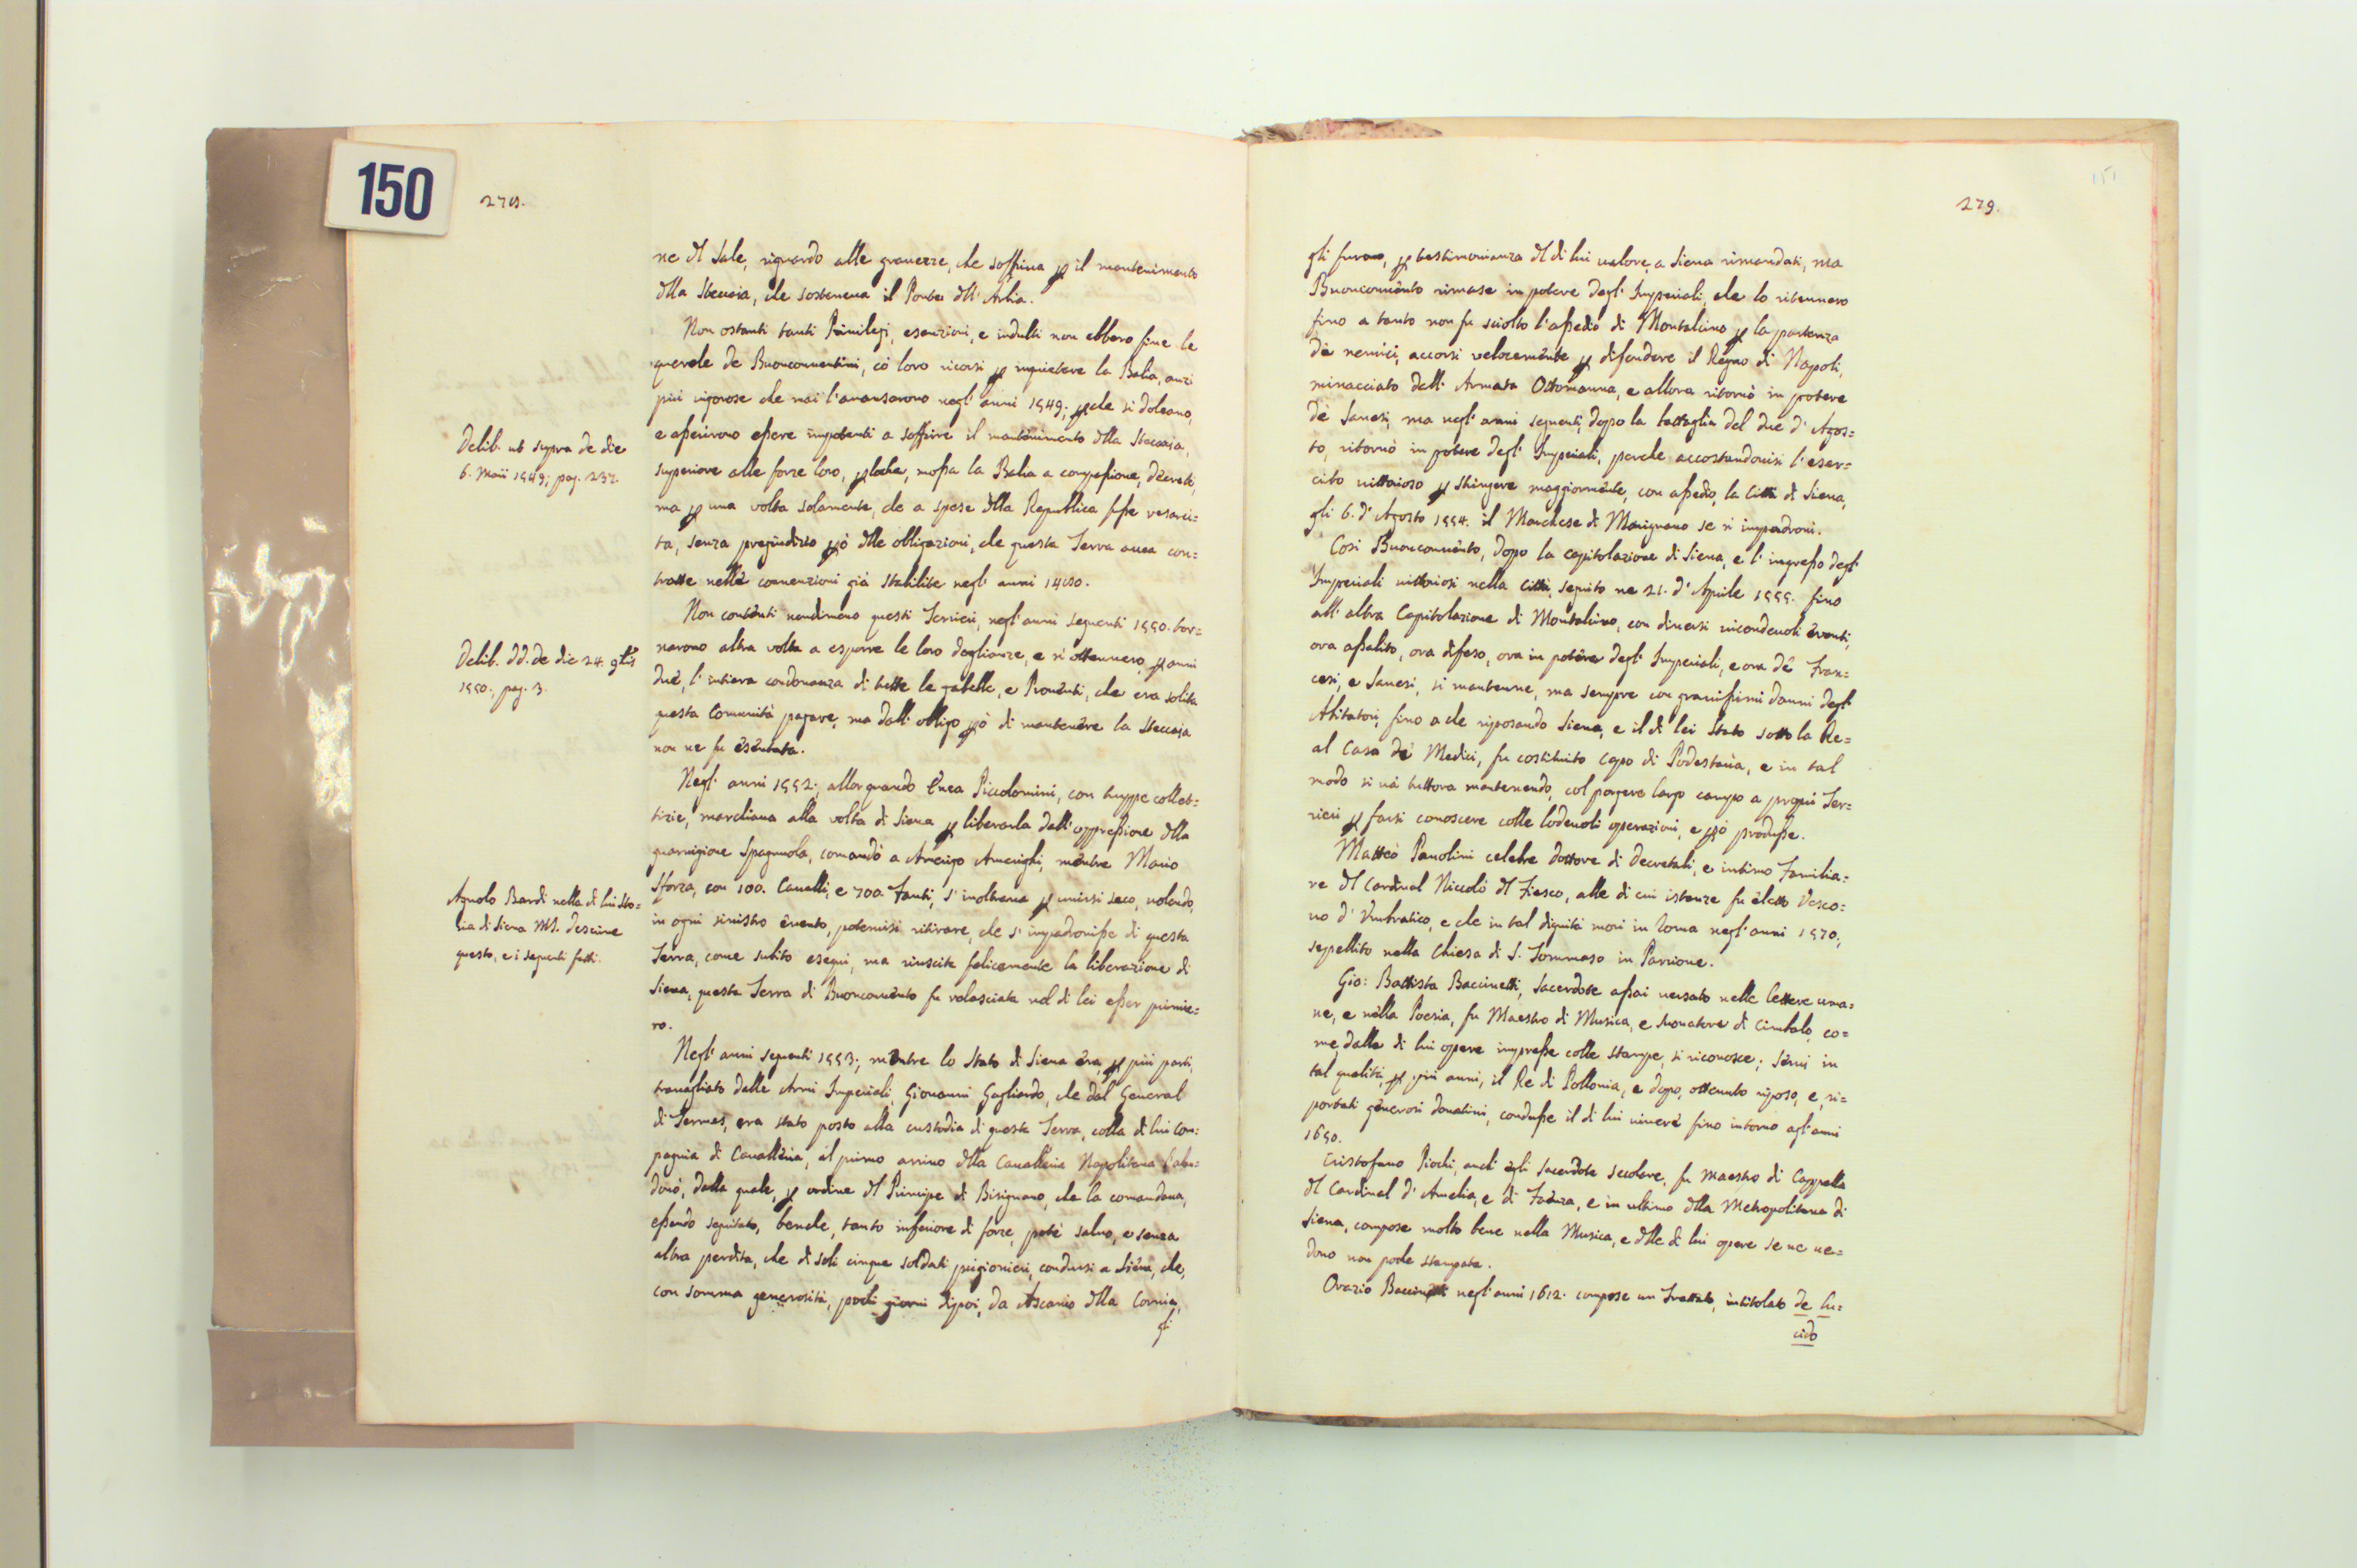 150
278.
ne dl Sale, riguardo alle grauezze, che soffriua p il mantenimento
dlla Steccaia, che sosteneua il Ponte dll' Arbia.
Non ostanti tanti Priuilegi, esenzioni, e indulti non ebbero fine le
querele de Buonconuentini, cò loro ricorsi p inquietare la Balia, anzi
più vigorose che mai l'auansarono negl' anni 1549; pche si doleano,
e asserirono essere impotenti a soffrire il mantenimento dlla Steccaia,
superiore alle forze loro, ploche, mossa la Balia a compassione, decretò,
ma p una volta solamente, che a spese dlla Republica fosse resarci=
ta, senza pregiudizio pò dlle obligazioni, che questa Terra auea con=
tratte nelle conuenzioni già stabilite negl' anni 1480.
Delib. ut supra de die
6. Maii 1549; pag. 237.
Non contenti nondimeno questi Terrieri, negl'anni seguenti 1550. tor=
narono altra volta a esporre le loro doglianze, e n'ottennero, p anni
due, l'intiera condonanza di tutte le gabelle, e Prouenti, che era solita
questa Comunità pagare, ma dall' obligo pò di mantenere la Steccaia
non ne fu esentata.
Delib. dd. de die 24. 9bris
1550., pag. 3.
Negl' anni 1552; allorquando Enea Piccolomini, con truppe collet=
tizie, marchiaua alla volta di Siena p liberarla dall' oppressione dlla
guarnigione Spagnuola, comandò a Amerigo Amerighi, mentre Mario
Sforza, con 100. Caualli, e 700. Fanti, s'inoltraua p unirsi seco, uolendo,
in ogni sinistro euento, poteruisi ritirare, che s' impadronisse di questa
Terra, come subito eseguì, ma riuscita felicemente la liberazione di
Siena, questa Terra di Buonconuento fu rilasciata nel di lei esser primie=
ro.
Agnolo Bardi nella di lui Sto=
ria di Siena MS. descriue
questo, e i seguenti fatti.
Negl' anni seguenti 1553; mentre lo Stato di Siena era, p più parti,
trauagliato dalle Armi Imperiali, Giouanni Gagliardo, che dal General
di Termes, era stato posto alla custodia di questa Terra, colla di lui Com=
pagnia di Caualleria, al primo arriuo dlla Caualleria Napolitana l'aban=
donò, dalla quale, p ordine dl Principe di Bisignano, che la comandaua,
essendo seguitato, benche, tanto inferiore di forze, potè saluo, e senza
altra perdita, che di soli cinque soldati prigionieri, condursi a Siena, che,
con somma generosità, pochi giorni dipoi, da Ascanio dlla Cornia,
gli
151
279.
gli furono, p testimonianza dl di lui ualore, a Siena rimandati, ma
Buonconuento rimase in potere degl' Imperiali, che lo ritennero
fino a tanto non fu sciolto l'assedio di Montalcino p la partenza
dè nemici, accorsi velocemente p difendere il Regno di Napoli,
minacciato dall' Armata Ottomanna, e allora ritornò in potere
dè Sanesi, ma negl' anni seguenti, dopo la battaglia del due d' Agos=
to, ritornò in potere degl' Imperiali, perche accostandouisi l'eser=
cito uittorioso p stringere maggiormente, con assedio, la Città di Siena,
gli 6. d' Agosto 1554. il Marchese di Marignano se n' impadronì.
Così Buonconuento, dopo la capitolazione di Siena, e l' ingresso degl'
Imperiali uittoriosi nella Città, seguito ne 21. d' Aprile 1555. fino
all' altra Capitolazione di Montalcino, con diuersi uicendeuoli euenti,
ora assalito, ora difeso, ora in potere degl' Imperiali, e ora dè Fran=
cesi, e Sanesi, si mantenne, ma sempre con grauissimi danni degl'
Abitatori, fino a che riposando Siena, e il di lei Stato sotto la Re=
al Casa de' Medici, fu costituito Capo di Podesteria, e in tal
modo si uà tuttora mantenendo, col porgere largo campo a proprii Ter=
rieri p farsi conoscere colle lodeuoli operazioni, e pciò produsse.
Matteo Panolini celebre dottore di Decretali, e intimo Familia=
re dl Cardinal Niccolò dl Fiesco, alle di cui istanze fu eletto Vesco=
uo d' Umbratico, e che in tal dignità morì in Roma negl' anni 1570;
sepellito nella Chiesa di S. Tommaso in Parrione.
Gio: Battista Baccinetti, Sacerdote assai uersato nelle lettere uma=
ne, e nella Poesia, fu Maestro di Musica, e suonatore di Cimbalo, co=
me dalle di lui opere impresse colle stampe, si riconosce; seruì in
tal qualità, p più anni, il Re di Pollonia, e dopo, ottenuto riposo, e, ri=
portati generosi donatiui, condusse il di lui uiuere fino intorno agl'anni
1650.
Cristofano Piochi, anch' egli Sacerdote secolare, fu Maestro di Cappella
dl Cardinal d' Amelia, e di Faenza, e in ultimo dlla Metropolitana di
Siena, compose molto bene nella Musica, e dlle di lui opere se ne ue=
dono non poche stampate.
Orazio negl'anni 1612. compose un Trattato, intitolato de Lu=
cido